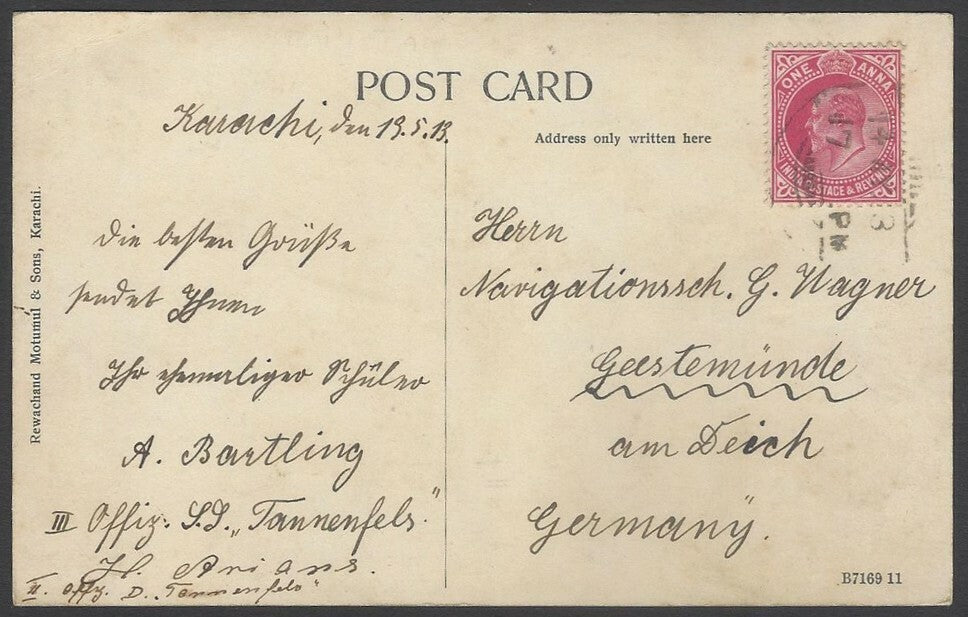 POST CARD
Karachi, den 19.5.13.
Address only written here
ONE ANNA
INDIA POSTAGE & REVENUE
17
PM
Die besten Grüße
sendet Ihnen
Ihr ehemaliger Schüler
A. Bartling
III Offiz. S.D. „Tannenfels"
H. Arians.
II. Offz. D. „Tannenfels"
Herrn
Navigationssch. G. Wagner
Geestemünde
am Deich
Germany.
Rewachand Motumul & Sons, Karachi.
B7169 11